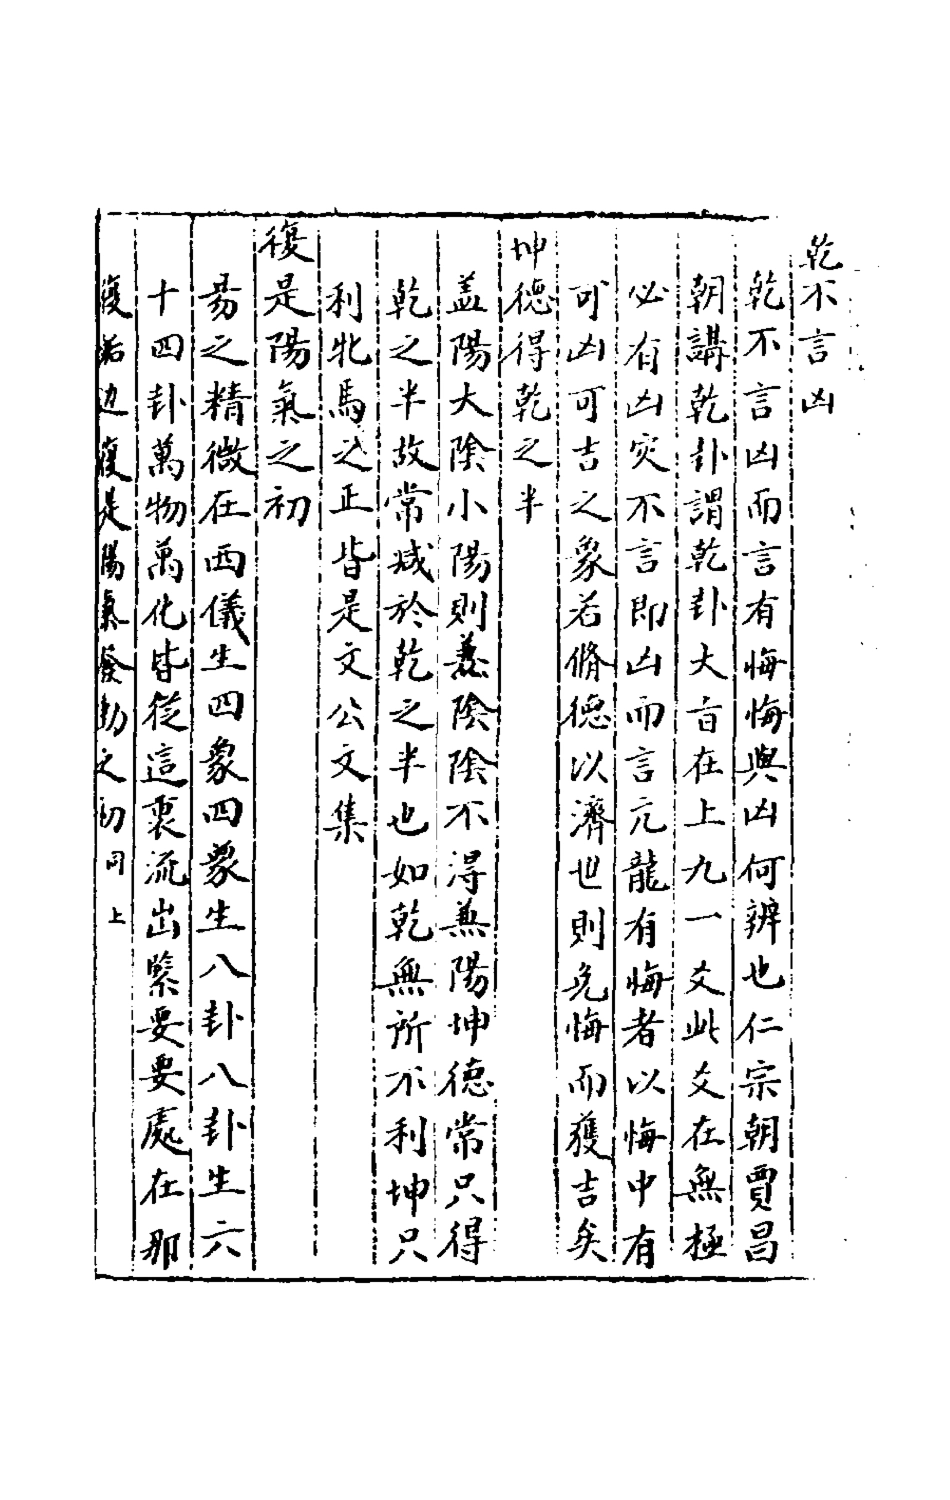 乾不言凶
乾不言凶而言有悔悔與凶何辨也仁宗朝賈昌
朝講乾卦謂乾卦大㫖在上九一爻此爻在無極
必有凶灾不言即凶而言亢龍有悔者以悔中有
可凶可吉之象若脩德以濟世則免悔而獲吉矣
坤德得乾之半
盖陽大隂小陽則兼隂隂不得兼陽坤德常只得
乾之半故常减於乾之半也如乾無所不利坤只
利牝馬之正皆是文公文集
復是陽氣之初
易之精微在兩儀生四象四象生八卦八卦生六
十四卦萬物萬化皆從這裏流出緊要要處在那
復姤边復是陽氣發動之初同上